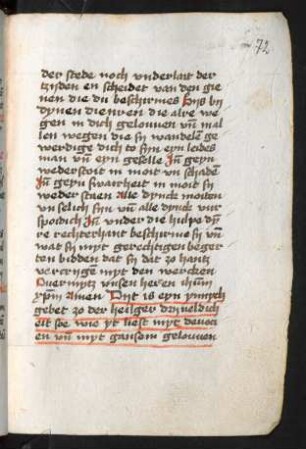 72
der stede noch vnderlait der
tzijden en scheidet van den gie
nen die du beschirmes Bis by
dynen dienren die alre we
gen in dich gelouuen vn̄ mal
len wegen die sy wandelē ge
werdige dich to syn eyn leides
man vn̄ eyn geselle In geyn
wederstoit in moit vn schadē
In geyn swairheit in moit sy
weder staen Alle dynck moiten
vn selich syn vn̄ alle dynck vur
spoidich In vnder die hulpe dyn̄
re rechterhant beschirme sy vn̄
wat sy myt gerechtigen beger
ten bidden dat sy dat zo hantz
vercrygē myt den wercken
Ouermitz vnsen heren ihm̄
xpm̄ Amen Dit is eyn ynnych
gebet zo der heilger drineldich
eit soe wie yt liest myt deuoci
en vn̄ myt gansom gelouuen